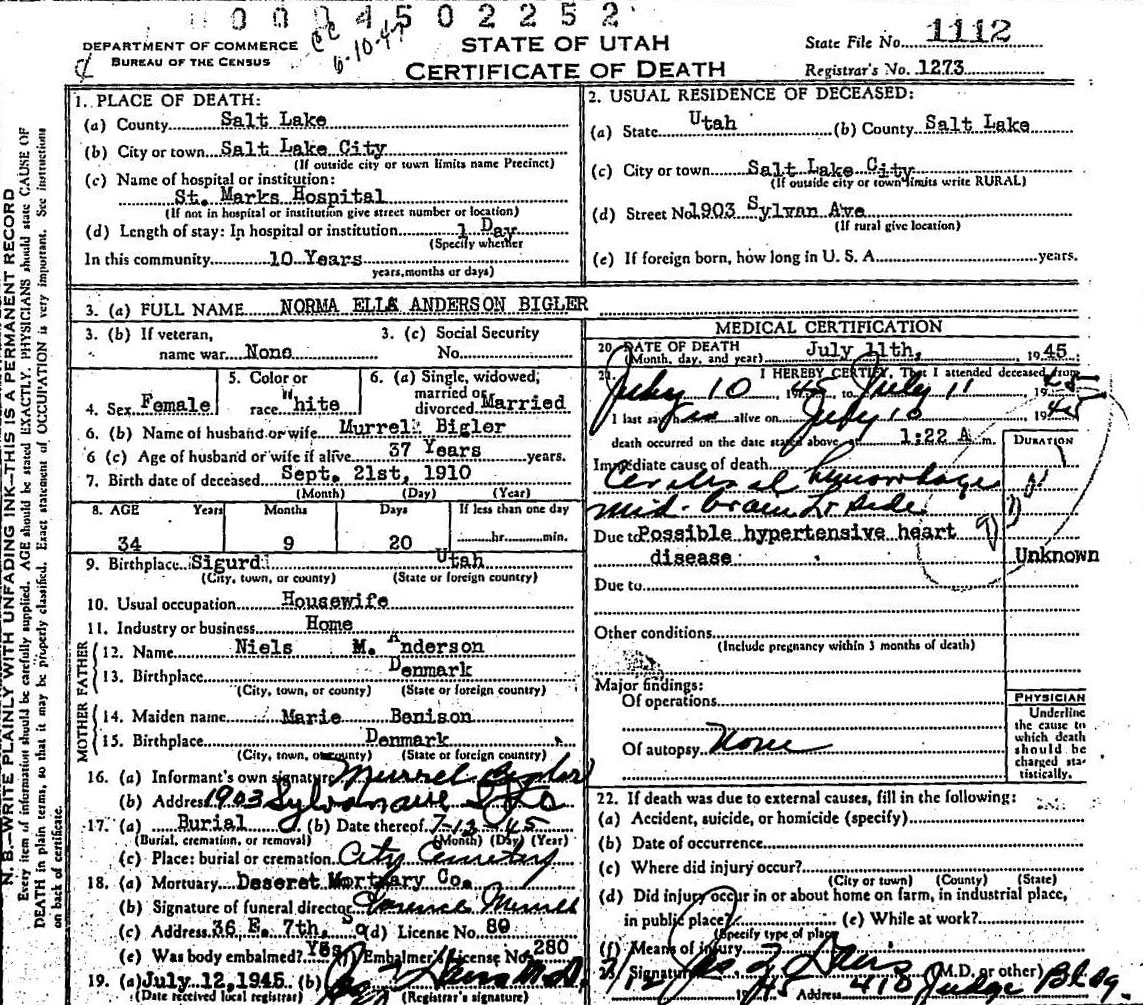 0004502252
DEPARTMENT OF COMMERCE
BUREAU OF THE CENSUS
CC
6-10-47
STATE OF UTAH
CERTIFICATE OF DEATH
State File No. 1112
Registrar's No. 1273
N. B.—WRITE PLAINLY WITH UNFADING INK—THIS IS A PERMANENT RECORD
Every item of information should be carefully supplied. AGE should be stated EXACTLY. PHYSICIANS should state CAUSE OF
DEATH in plain terms, so that it may be properly classified. Exact statement of OCCUPATION is very important. See instructions
on back of certificate.
1. PLACE OF DEATH:
(a) County Salt Lake
(b) City or town Salt Lake City
(If outside city or town limits name Precinct)
(c) Name of hospital or institution:
St. Marks Hospital
(If not in hospital or institution give street number or location)
(d) Length of stay: In hospital or institution 1 Day
(Specify whether
In this community 10 Years
years, months or days)
2. USUAL RESIDENCE OF DECEASED:
(a) State Utah (b) County Salt Lake
(c) City or town Salt Lake City
(If outside city or town limits write RURAL)
(d) Street No. 1903 Sylvan Ave
(If rural give location)
(e) If foreign born, how long in U. S. A. years.
3. (a) FULL NAME NORMA ELLA ANDERSON BIGLER
3. (b) If veteran, 3. (c) Social Security
name war None No.
4. Sex Female
5. Color or
race White
6. (a) Single, widowed,
married or
divorced Married
6. (b) Name of husband or wife Murrel Bigler
6 (c) Age of husband or wife if alive 37 Years years.
7. Birth date of deceased Sept. 21st, 1910
(Month) (Day) (Year)
8. AGE Years Months Days If less than one day
34 9 20 hr. min.
9. Birthplace Sigurd Utah
(City, town, or county) (State or foreign country)
10. Usual occupation Housewife
11. Industry or business Home
FATHER
12. Name Niels M. Anderson
13. Birthplace Denmark
(City, town, or county) (State or foreign country)
MOTHER
14. Maiden name Marie Benison
15. Birthplace Denmark
(City, town, or county) (State or foreign country)
16. (a) Informant's own signature Murrel Bigler
(b) Address 1903 Sylvan ave
17. (a) Burial (b) Date thereof 7-12-45
(Burial, cremation, or removal) (Month) (Day) (Year)
(c) Place: burial or cremation City Cemetery
18. (a) Mortuary Deseret Mortuary Co.
(b) Signature of funeral director
(c) Address 36 E. 7th, So (d) License No. 80
(e) Was body embalmed? Yes Embalmer's License No. 280
19. (a) July 12, 1945 (b)
(Date received local registrar) (Registrar's signature)
MEDICAL CERTIFICATION
20. DATE OF DEATH July 11th, 1945
(Month, day, and year)
21. I HEREBY CERTIFY, That I attended deceased from
July 10, 1945, to July 11 1945
I last saw her alive on July 10 1945
death occurred on the date stated above at 1:22 A m.
DURATION
Immediate cause of death
Cerebral hemorrhage
mid-brain Lt side
Due to Possible hypertensive heart
disease Unknown
Due to
Other conditions
(Include pregnancy within 3 months of death)
Major findings:
Of operations
Of autopsy None
PHYSICIAN
Underline
the cause to
which death
should be
charged sta-
tistically.
22. If death was due to external causes, fill in the following:
(a) Accident, suicide, or homicide (specify)
(b) Date of occurrence
(c) Where did injury occur?
(City or town) (County) (State)
(d) Did injury occur in or about home on farm, in industrial place,
in public place? (e) While at work?
(Specify type of place
(f) Means of injury
23. Signature (M.D. or other)
7/12 1945 Address 410 Judge Bldg.